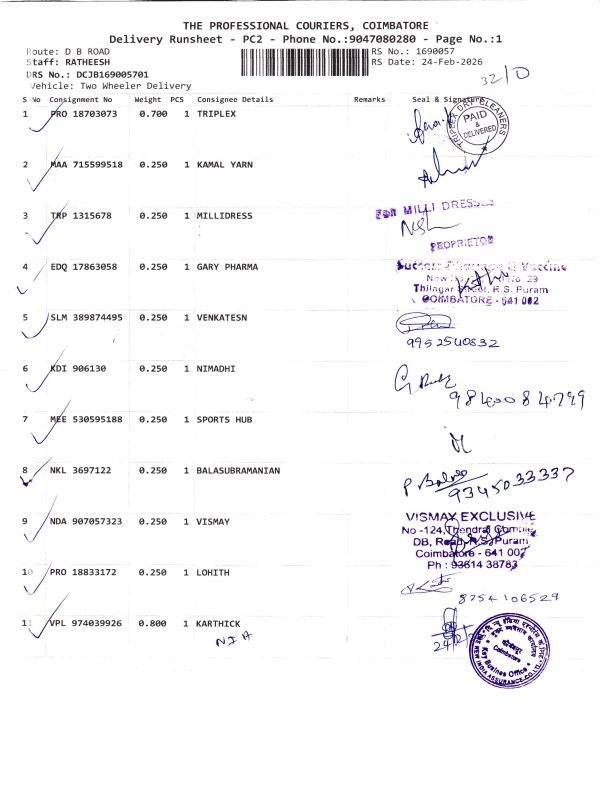 THE PROFESSIONAL COURIERS, COIMBATORE
Delivery Runsheet - PC2 - Phone No.:9047080280 - Page No.:1
Route: D B ROAD
Staff: RATHEESH
DRS No.: DCJB169005701
Vehicle: Two Wheeler Delivery
RS No.: 1690057
RS Date: 24-Feb-2026
32/D
S No Consignment No Weight PCS Consignee Details Remarks Seal & Signature
1 PRO 18703073 0.700 1 TRIPLEX
TRIPLEX DRY CLEANERS
PAID & DELIVERED
2 MAA 715599518 0.250 1 KAMAL YARN
3 TRP 1315678 0.250 1 MILLIDRESS
FOR MILLI DRESSES
PROPRIETOR
4 EDQ 17863058 0.250 1 GARY PHARMA
Success Pharmacy & Vaccine
No. 29
Thilagar Street, R.S. Puram
COIMBATORE - 641 002
5 SLM 389874495 0.250 1 VENKATESN
9952540832
6 KDI 906130 0.250 1 NIMADHI
9840084799
7 MEE 530595188 0.250 1 SPORTS HUB
8 NKL 3697122 0.250 1 BALASUBRAMANIAN
9345033337
9 NDA 907057323 0.250 1 VISMAY
VISMAY EXCLUSIVE
No -124, Thendral Complex
DB, Road, R.S. Puram
Coimbatore - 641 002
Ph : 93614 38783
10 PRO 18833172 0.250 1 LOHITH
8754106529
11 VPL 974039926 0.800 1 KARTHICK
NIA
THE NEW INDIA ASSURANCE CO. LTD.
Coimbatore
Key Business Office